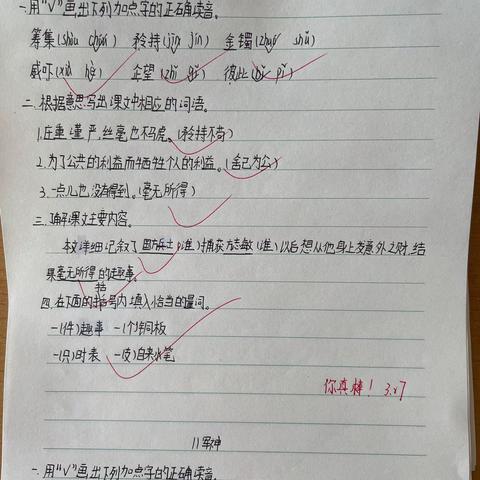 一.用“√”画出下列加点字的正确读音。
筹集(shòu chóu) 矜持(jīn jīn) 金镯(zhuó shǔ)
威吓(xià hè) 企望(zhǐ qǐ) 彼此(bǐ pǐ)
二.根据意思写出课文中相应的词语。
1.庄重,谨严,丝毫也不马虎。(矜持不苟)
2.为了公共的利益而牺牲个人的利益。(舍己为公)
3.一点儿也没有得到。(毫无所得)
三.了解课文主要内容。
本文详细记叙了国民党士兵(谁)捕获方志敏(谁)以后想从他身上发意外之财,结
果毫无所得的趣事。
四.在下面的括号内填入恰当的量词。
一(件)趣事 一(个)铜板
一(只)时表 一(支)自来水笔
你真棒! 3.27
11军神
一.用“√”画出下列加点字的正确读音。